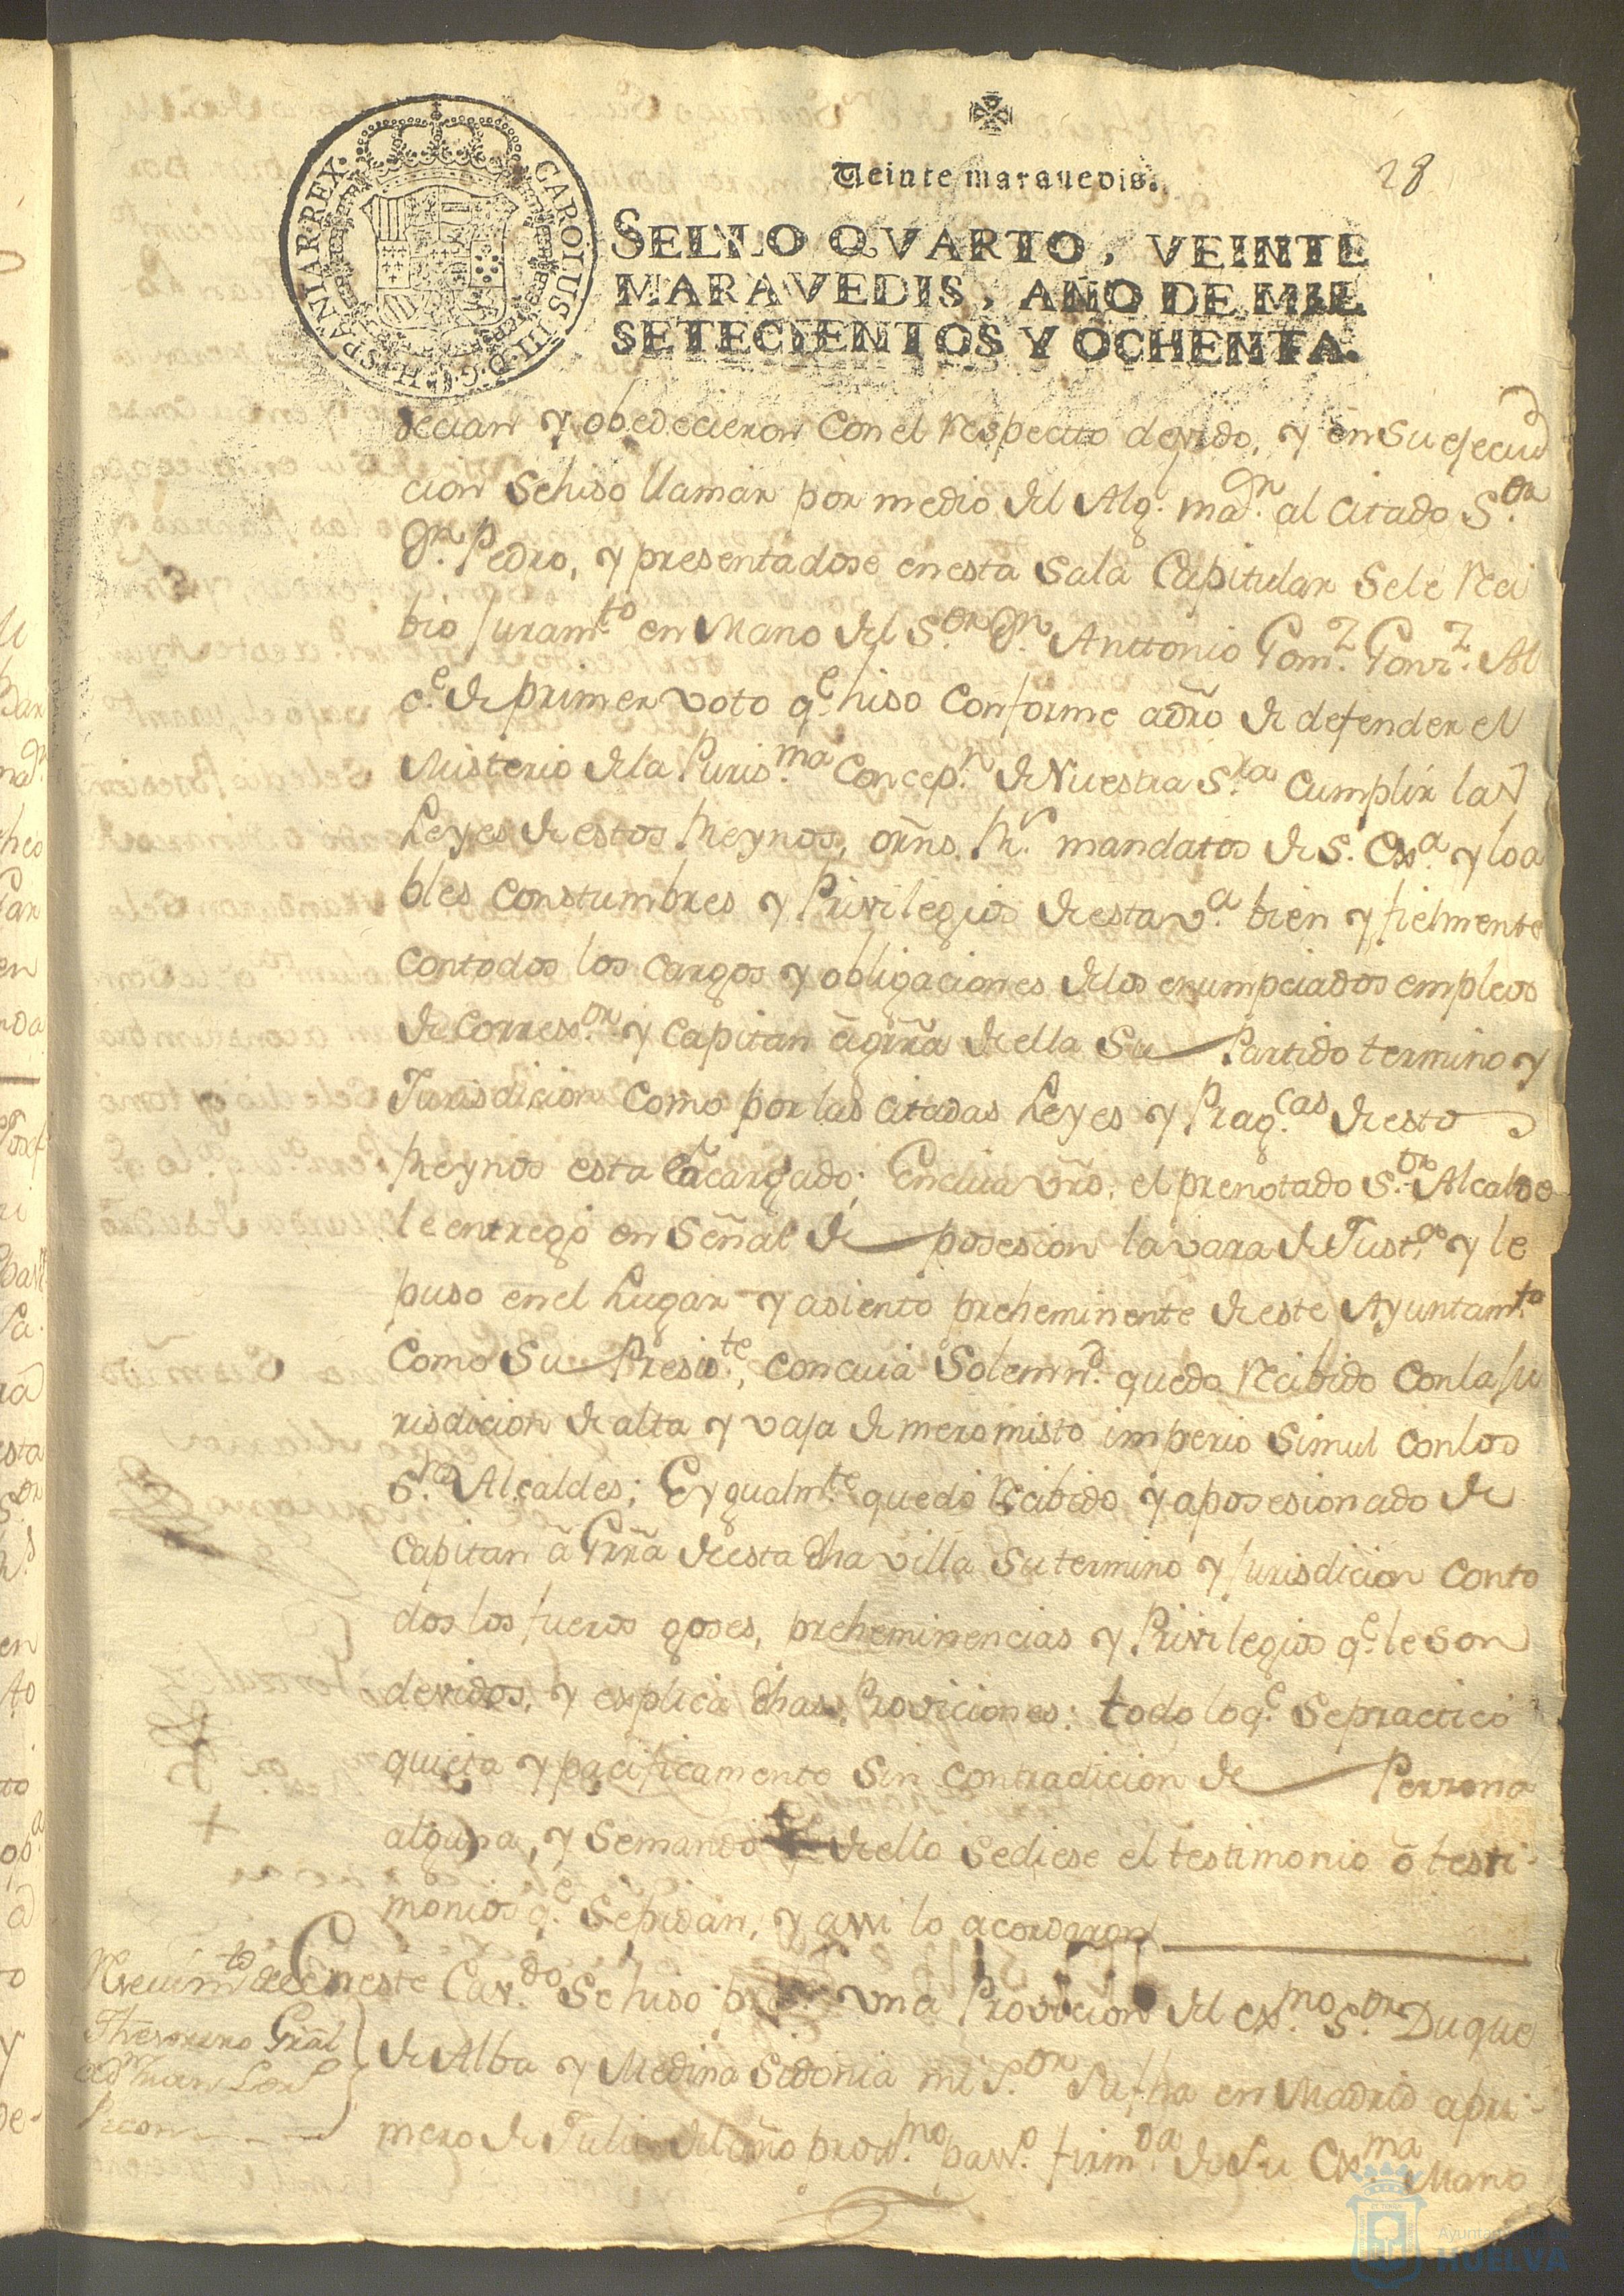 CAROLUS III D.G. HISPANIAR REX.
Veinte maravedis.
28
SELLO QVARTO, VEINTE
MARAVEDIS, AÑO DE MIL
SETECIENTOS Y OCHENTA.
decian y obedecieron con el respecto devido, y en su ejecu
cion se hiso llamar por medio del Alg.r ma.r al citado S.or
Dn. Pedro, y presentadose en esta Sala Capitular se le reci
bio juram.to en mano del S.or Dn. Anttonio Gom.z Gonz.z Al
c.e de primer voto q.e hiso conforme a dro de defender el
Misterio de la Puris.ma Concep.n de Nuestra S.ra cumplir las
Leyes de estos Reynos, orns. R.s mandatos de S. Exa. y loa
bles constumbres y Privilegios de esta v.a bien y fielmente
con todos los cargos y obligaciones de los enumpciados empleos
de Correx.or y Capitan â grra de ella su Partido termino y
Jurisdicion como por las citadas Leyes y Prag.cas de estos
Reynos esta encargado; En cuia vrd. el prenotado S.or Alcalde
le entregó en señal de posesion la vara de Just.a y le
puso en el Lugar y asiento preheminente de este Ayuntam.to
como su Presid.te, con cuia solemn.d quedo recibido con la ju
risdicion de alta y vaja de mero misto imperio simul con los
S.res Alcaldes; E ygualm.te quedó recibido y aposesionado de
Capitan â Grrâ de esta dha villa su termino y jurisdicion con to
dos los fueros goses, preheminencias y Privilegios q.e le son
devidos, y explica dhas Proviciones: todo lo q.e se practicó
quieta y pacificamente sin contradicion de Perzona
alguna, y se mandó de ello se diese el testimonio ô testi-
monios q.e se pidan, y assi lo acordaron
Resevim.to del
Thesorero Gral
a Dn Juan
Recon
En este Cav.do se hiso pres.te una Provicion del ex.mo S.or Duque
de Alba y Medina Sidonia mi S.or su fha en Madrid a pri-
mero de Julio del año prox.mo pass.o firm.da de su Ex.ma Mano
Ayuntamiento
HUELVA